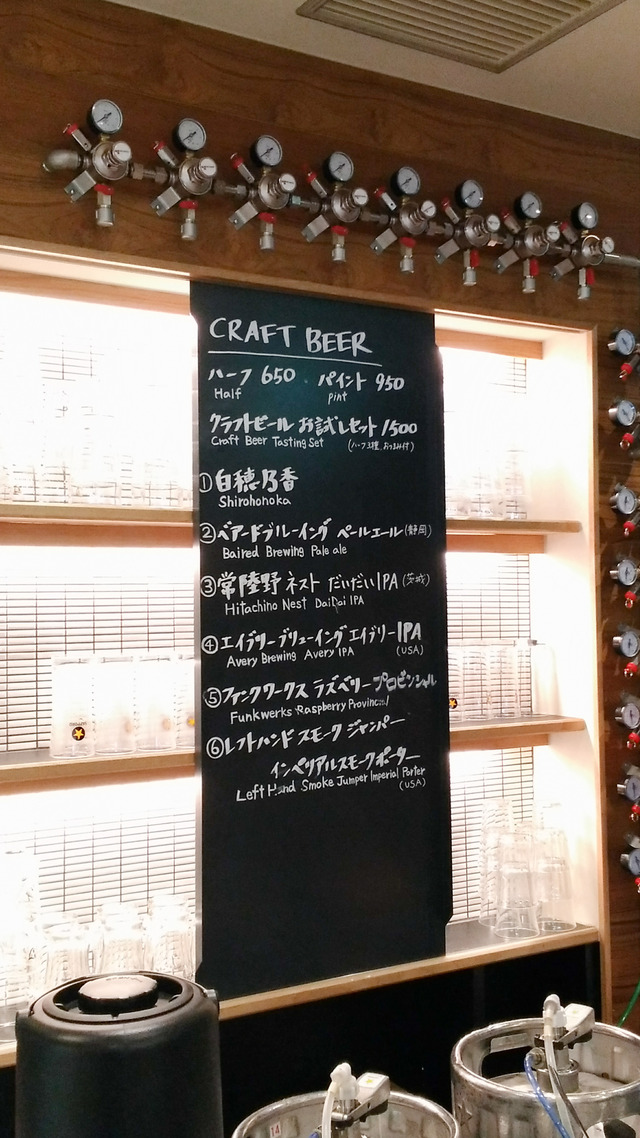 CRAFT BEER
ハーフ 650 パイント 950
Half pint
クラフトビール お試しセット 1500
Craft Beer Tasting Set (ハーフ3種、おつまみ付)
①白穂乃香
Shirohonoka
②ベアードブルーイング ペールエール(静岡)
Baired Brewing Pale ale
③常陸野 ネスト だいだいIPA(茨城)
Hitachino Nest DaiDai IPA
④エイブリーブリューイング エイブリーIPA
Avery Brewing Avery IPA (USA)
⑤ファンクワークス ラズベリープロビンシャル
Funkwerks Raspberry Provincial
⑥レフトハンド スモークジャンパー
インペリアルスモークポーター
Left Hand Smoke Jumper Imperial Porter
(USA)
14